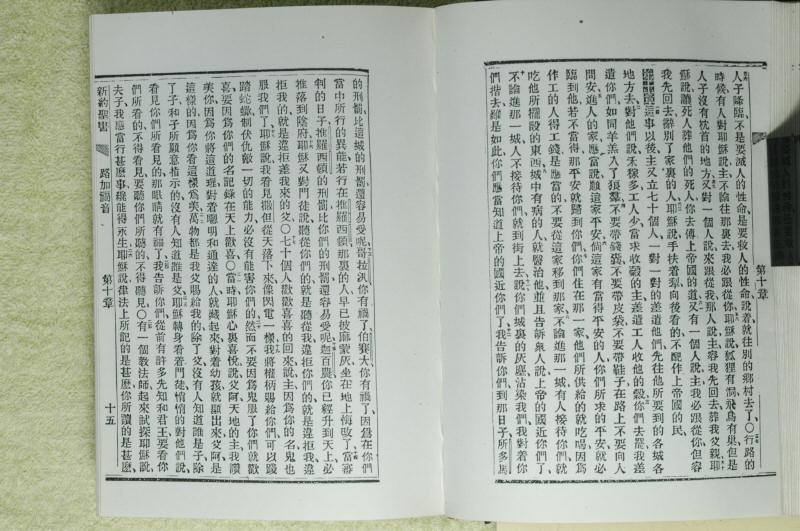 人子降臨、不是要滅人的性命、是要救人的性命、說着就往別的鄉村去了、〇行路的
時候有人對耶穌說、主不論往那裏去、我必跟從你、耶穌說、狐狸有洞、飛鳥有巢、但是
人子沒有枕首的地方、又對一個人說、來跟從我、那人說、主容我先回去葬我父親、耶
穌說、讓死人葬他們的死人、你去傳上帝國的道、又有一個人說、主我必跟從你、但容
我先回去辭別了家裏的人、耶穌說、手扶着犁向後看的、不配作上帝國的民、
第十章 這事以後、主又立七十個人、一對一對的差遣他們、先往他所要到的各城各
地方去、對他們說、禾稼多、工人少、當求收穀的主、差遣工人收他的穀、你們去罷、我差
遣你們、如同羊羔入了狼羣、不要帶錢囊、不要帶皮袋、不要帶鞋子、在路上不要向人
問安、進人的家、應當說、願這家平安、倘這家有當得平安的人、你們所求的平安、就必
臨到他、若不當得、那平安就歸你們、你們住在那一家、他們所供給的就吃喝、因爲
作工的人得工錢、是應當的、不要從這家移到那家、不論進那一城、有人接待你們、就
吃他所擺設的東西、城中有病的人、就醫治他、並且告訴衆人說、上帝的國近你們了、
不論進那一城、人不接待你們、就到街上去說、你們城裏的灰塵沾染我們、我對着你
們揩去、雖是如此、你們應當知道上帝的國近你們了、我告訴你們、到那日子所多馬
第十章
的刑罰、比這城的刑罰還容易受呢、哥拉汛你有禍了、伯賽大你有禍了、因爲在你們
當中所行的異能、若行在推羅西頓、那裏的人、早已披麻蒙灰坐在地上悔改了、當審
判的日子、推羅西頓的刑罰、比你們的刑罰、還容易受呢、迦百農你已經升到天上、必
推落到陰府、耶穌又對門徒說、聽從你們的、就是聽從我、違拒你們的、就是違拒我、違
拒我的、就是違拒差我來的父、〇七十個人、歡歡喜喜的回來、說、主因爲你的名、鬼也
服我們了、耶穌說、我看見撒但從天落下來、像閃電一樣、我將權柄賜給你們、可以踐
踏蛇蠍、制伏仇敵一切的能力、必沒有能害你們的、然而不要因爲鬼服了你們就歡
喜、要因爲你們的名記錄在天上歡喜、〇當時耶穌心裏喜悅說、父阿、天地的主、我讚
美你、因爲你將這道理、對着聰明和通達的人就藏起來、對着幼孩就顯出來、父阿、是
這樣的、因爲你看這樣爲美、萬物都是我父賜給我的、除了父沒有人知道誰是子、除
了子和子所願意指示的、沒有人知道誰是父、耶穌轉身看着門徒、悄悄的對他們說、
看見你們所看見的、那眼睛就有福了、我告訴你們、從前有許多先知和君王、要看你
們所看的、不得看見、要聽你們所聽的、不得聽見、〇有一個教法師起來試探耶穌說、
夫子我應當行甚麼事、纔能得永生、耶穌說、律法上所記的是甚麼、你所讀的是甚麼、
新約聖書 路加福音 第十章 十五